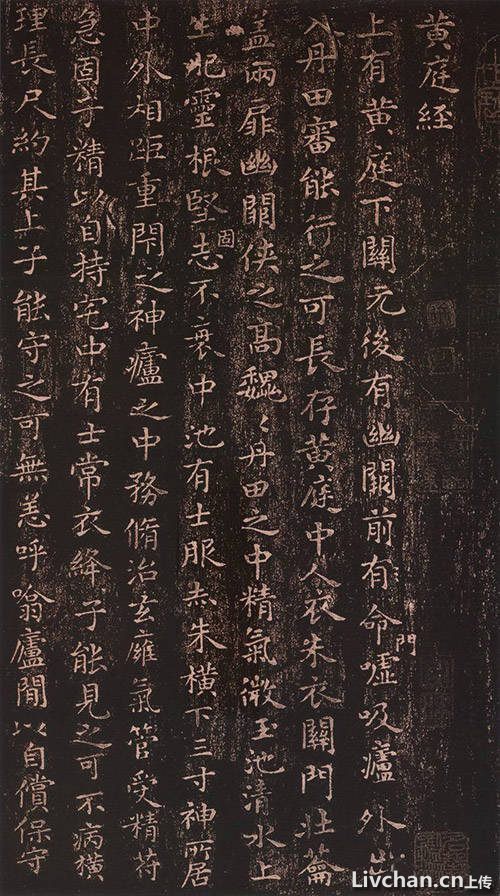 黄庭經
上有黄庭下關元後有幽闕前有命門噓吸廬外出
入丹田審能行之可長存黄庭中人衣朱衣關門壯蘥
盖兩扉幽闕俠之高魏〻丹田之中精氣微玉池清水上
生肥靈根堅固志不衰中池有士服赤朱橫下三寸神所居
中外相距重閇之神廬之中務脩治玄廱氣管受精符
急固子精以自持宅中有士常衣絳子能見之可不病橫
理長尺約其上子能守之可無恙呼噏廬閒以自償保守
Livchan.cn上传